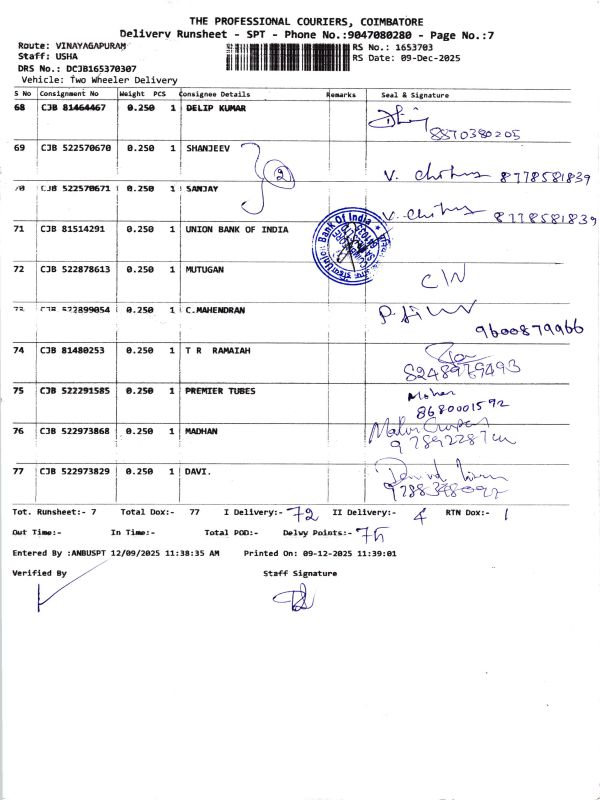 THE PROFESSIONAL COURIERS, COIMBATORE
Delivery Runsheet - SPT - Phone No.:9047080280 - Page No.:7
Route: VINAYAGAPURAM RS No.: 1653703
Staff: USHA RS Date: 09-Dec-2025
DRS No.: DCJB165370307
Vehicle: Two Wheeler Delivery
S No Consignment No Weight PCS Consignee Details Remarks Seal & Signature
68 CJB 81464467 0.250 1 DELIP KUMAR
8870380205
69 CJB 522570670 0.250 1 SHANJEEV 2 V. 8778581839
70 CJB 522570671 0.250 1 SANJAY V. 8778581839
71 CJB 81514291 0.250 1 UNION BANK OF INDIA Union Bank Of India
72 CJB 522878613 0.250 1 MUTUGAN
73 CJB 522899054 0.250 1 C.MAHENDRAN
9600879966
74 CJB 81480253 0.250 1 T R RAMAIAH
8248979493
75 CJB 522291585 0.250 1 PREMIER TUBES Mohan
8680001592
76 CJB 522973868 0.250 1 MADHAN
77 CJB 522973829 0.250 1 DAVI.
Tot. Runsheet:- 7 Total Dox:- 77 I Delivery:- 72 II Delivery:- 4 RTN Dox:- 1
Out Time:- In Time:- Total POD:- Delvy Points:- 75
Entered By :ANBUSPT 12/09/2025 11:38:35 AM Printed On: 09-12-2025 11:39:01
Verified By Staff Signature